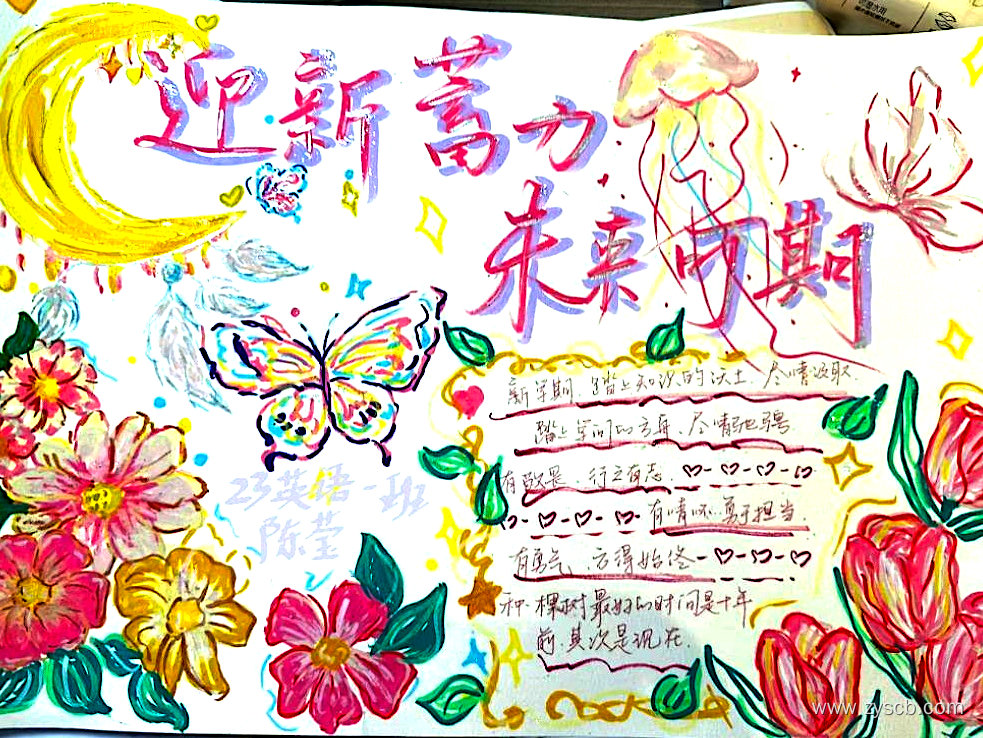 迎新蓄力
未来可期
新学期，踏上知识的沃土，尽情汲取，
踏上学问的方舟，尽情驰骋
有敬畏，行之有志
有情怀，勇于担当，
有勇气，方得始终
种一棵树最好的时间是十年
前，其次是现在，
23英语一班
陈莹
www.zyscb.com